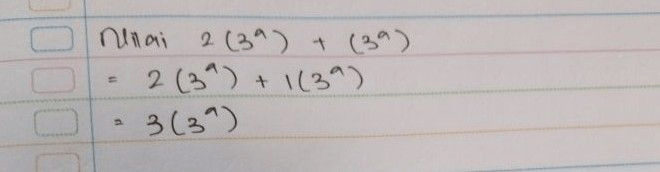 Nilai 2 (3⁹) + (3⁹)
= 2 (3⁹) + 1(3⁹)
= 3(3⁹)